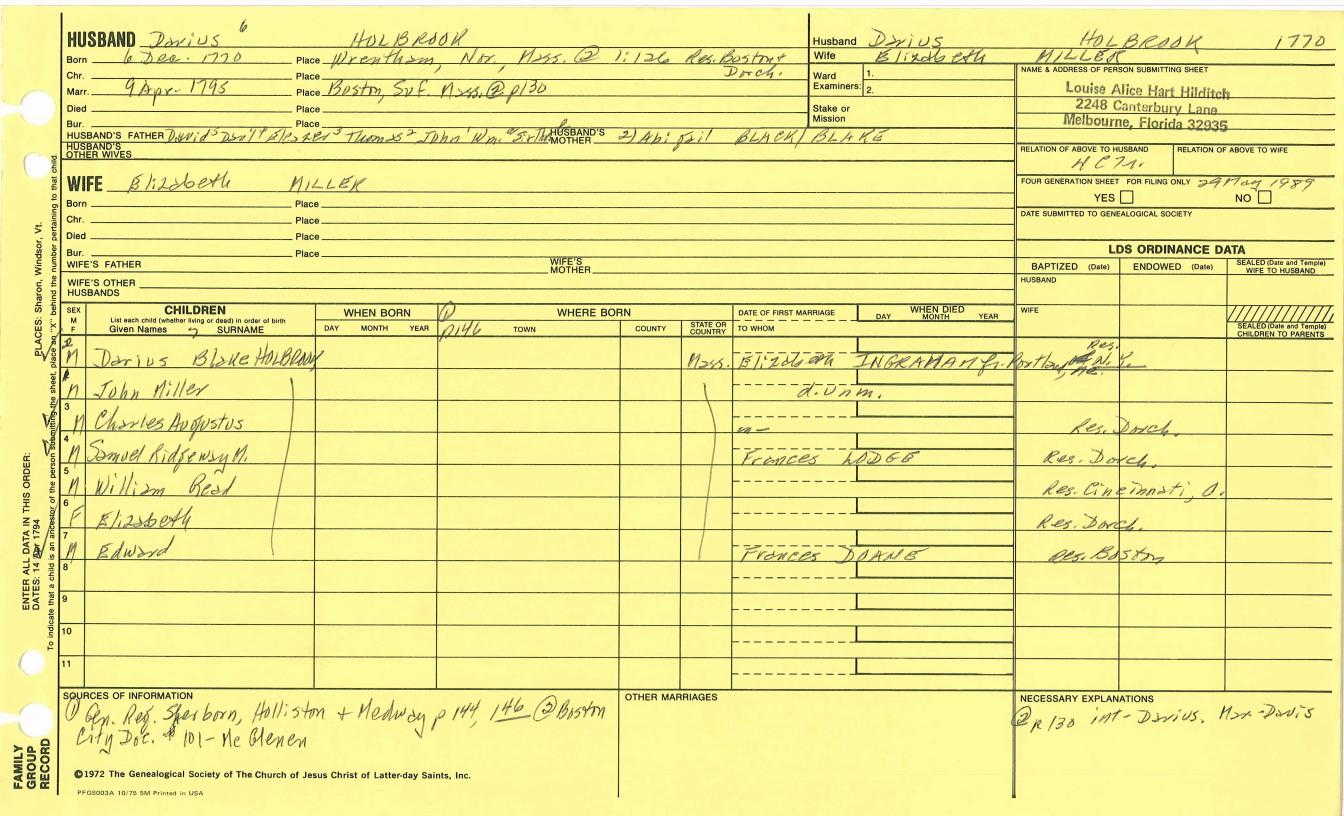 HUSBAND Darius 6 HOLBROOK
Born 6 Dec. 1770 Place Wrentham, Nor., Mass. ② 1:126 Res. Boston +
Dorch.
Chr. Place
Marr. 9 Apr. 1795 Place Boston, Suf. Mass. ② p130
Died Place
Bur. Place
HUSBAND'S FATHER David 5 4 Eleazer 3 Thomas 2 John 1 Wm. HUSBAND'S MOTHER 2) Abigail BLACK/BLAKE
HUSBAND'S OTHER WIVES
Husband Darius HOLBROOK 1770
Wife Elizabeth MILLER
Ward Examiners: 1.
2.
Stake or Mission
NAME & ADDRESS OF PERSON SUBMITTING SHEET
Louise Alice Hart Hilditch
2248 Canterbury Lane
Melbourne, Florida 32935
RELATION OF ABOVE TO HUSBAND RELATION OF ABOVE TO WIFE
FOUR GENERATION SHEET FOR FILING ONLY 29 May 1989
YES NO
DATE SUBMITTED TO GENEALOGICAL SOCIETY
WIFE Elizabeth MILLER
Born Place
Chr. Place
Died Place
Bur. Place
WIFE'S FATHER WIFE'S MOTHER
WIFE'S OTHER HUSBANDS
LDS ORDINANCE DATA
BAPTIZED (Date) ENDOWED (Date) SEALED (Date and Temple) WIFE TO HUSBAND
HUSBAND
WIFE
SEALED (Date and Temple) CHILDREN TO PARENTS
SEX M F
CHILDREN
List each child (whether living or dead) in order of birth
Given Names 7 SURNAME
WHEN BORN
DAY MONTH YEAR
① p146
WHERE BORN
TOWN COUNTY STATE OR COUNTRY
DATE OF FIRST MARRIAGE
TO WHOM
WHEN DIED
DAY MONTH YEAR
M Darius Blake HOLBROOK Mass. Elizabeth INGRAHAM fr. Portland, Me. Res. N.Y.
M John Miller d. unm.
3 M Charles Augustus Res. Dorch.
4 M Samuel Ridgeway M. Frances LODGE Res. Dorch.
5 M William Read Res. Cincinnati, O.
6 F Elizabeth Res. Dorch.
7 M Edward Frances DOANE Res. Boston
8
9
10
11
SOURCES OF INFORMATION
① Gen. Reg. Sherborn, Holliston + Medway p 144, 146 ② Boston
City Doc. # 101 - Mc Glenen
OTHER MARRIAGES
NECESSARY EXPLANATIONS
② p 130 int - Darius. Mar - Davis
©1972 The Genealogical Society of The Church of Jesus Christ of Latter-day Saints, Inc.
PFGS003A 10/75 5M Printed in USA
FAMILY GROUP RECORD
ENTER ALL DATA IN THIS ORDER:
DATES: 14 Apr 1794
PLACES: Sharon, Windsor, Vt.
To indicate that a child is an ancestor of the person submitting the sheet, place an "X" behind the number pertaining to that child.